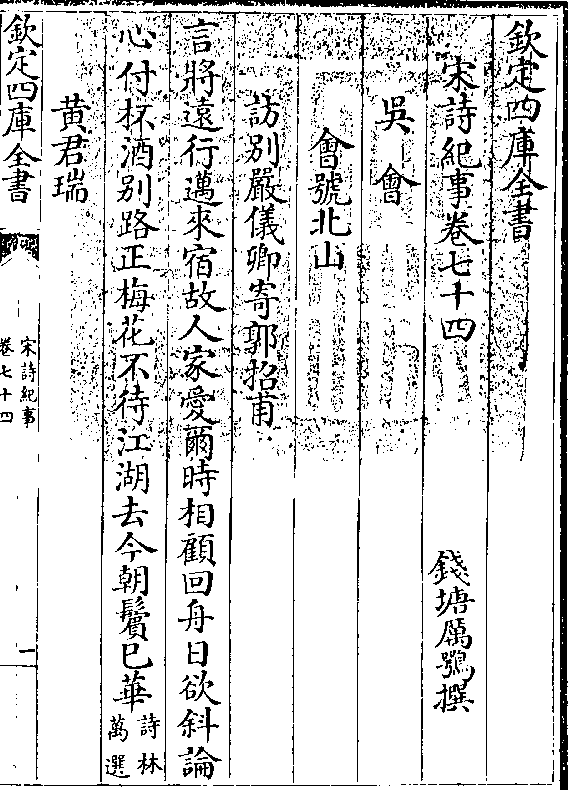 欽定四庫全書
宋詩紀事卷七十四
錢塘厲鶚撰
吳會
會號北山
訪別嚴儀卿寄郭招甫
言將遠行邁來宿故人家愛爾時相顧回舟日欲斜論
心付杯酒別路正梅花不待江湖去今朝鬢已華
詩林
萬選
黃君瑞
欽定四庫全書
宋詩紀事
卷七十四
一